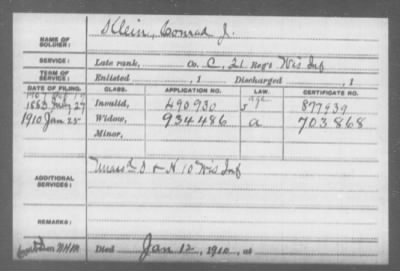 NAME OF SOLDIER: Klein, Conrad J.
SERVICE: Late rank, Co. C, 21 Reg't Wis Inf
TERM OF SERVICE: Enlisted , 1 Discharged , 1
DATE OF FILING. CLASS. APPLICATION NO. LAW. CERTIFICATE NO.
1883 July 27 Invalid, 490930 age 877939
1910 Jan 25 Widow, 934486 a 703868
Minor,
ADDITIONAL SERVICES: Unass'd D & K 10 Wis Inf
REMARKS:
Died Jan 12, 1910, at